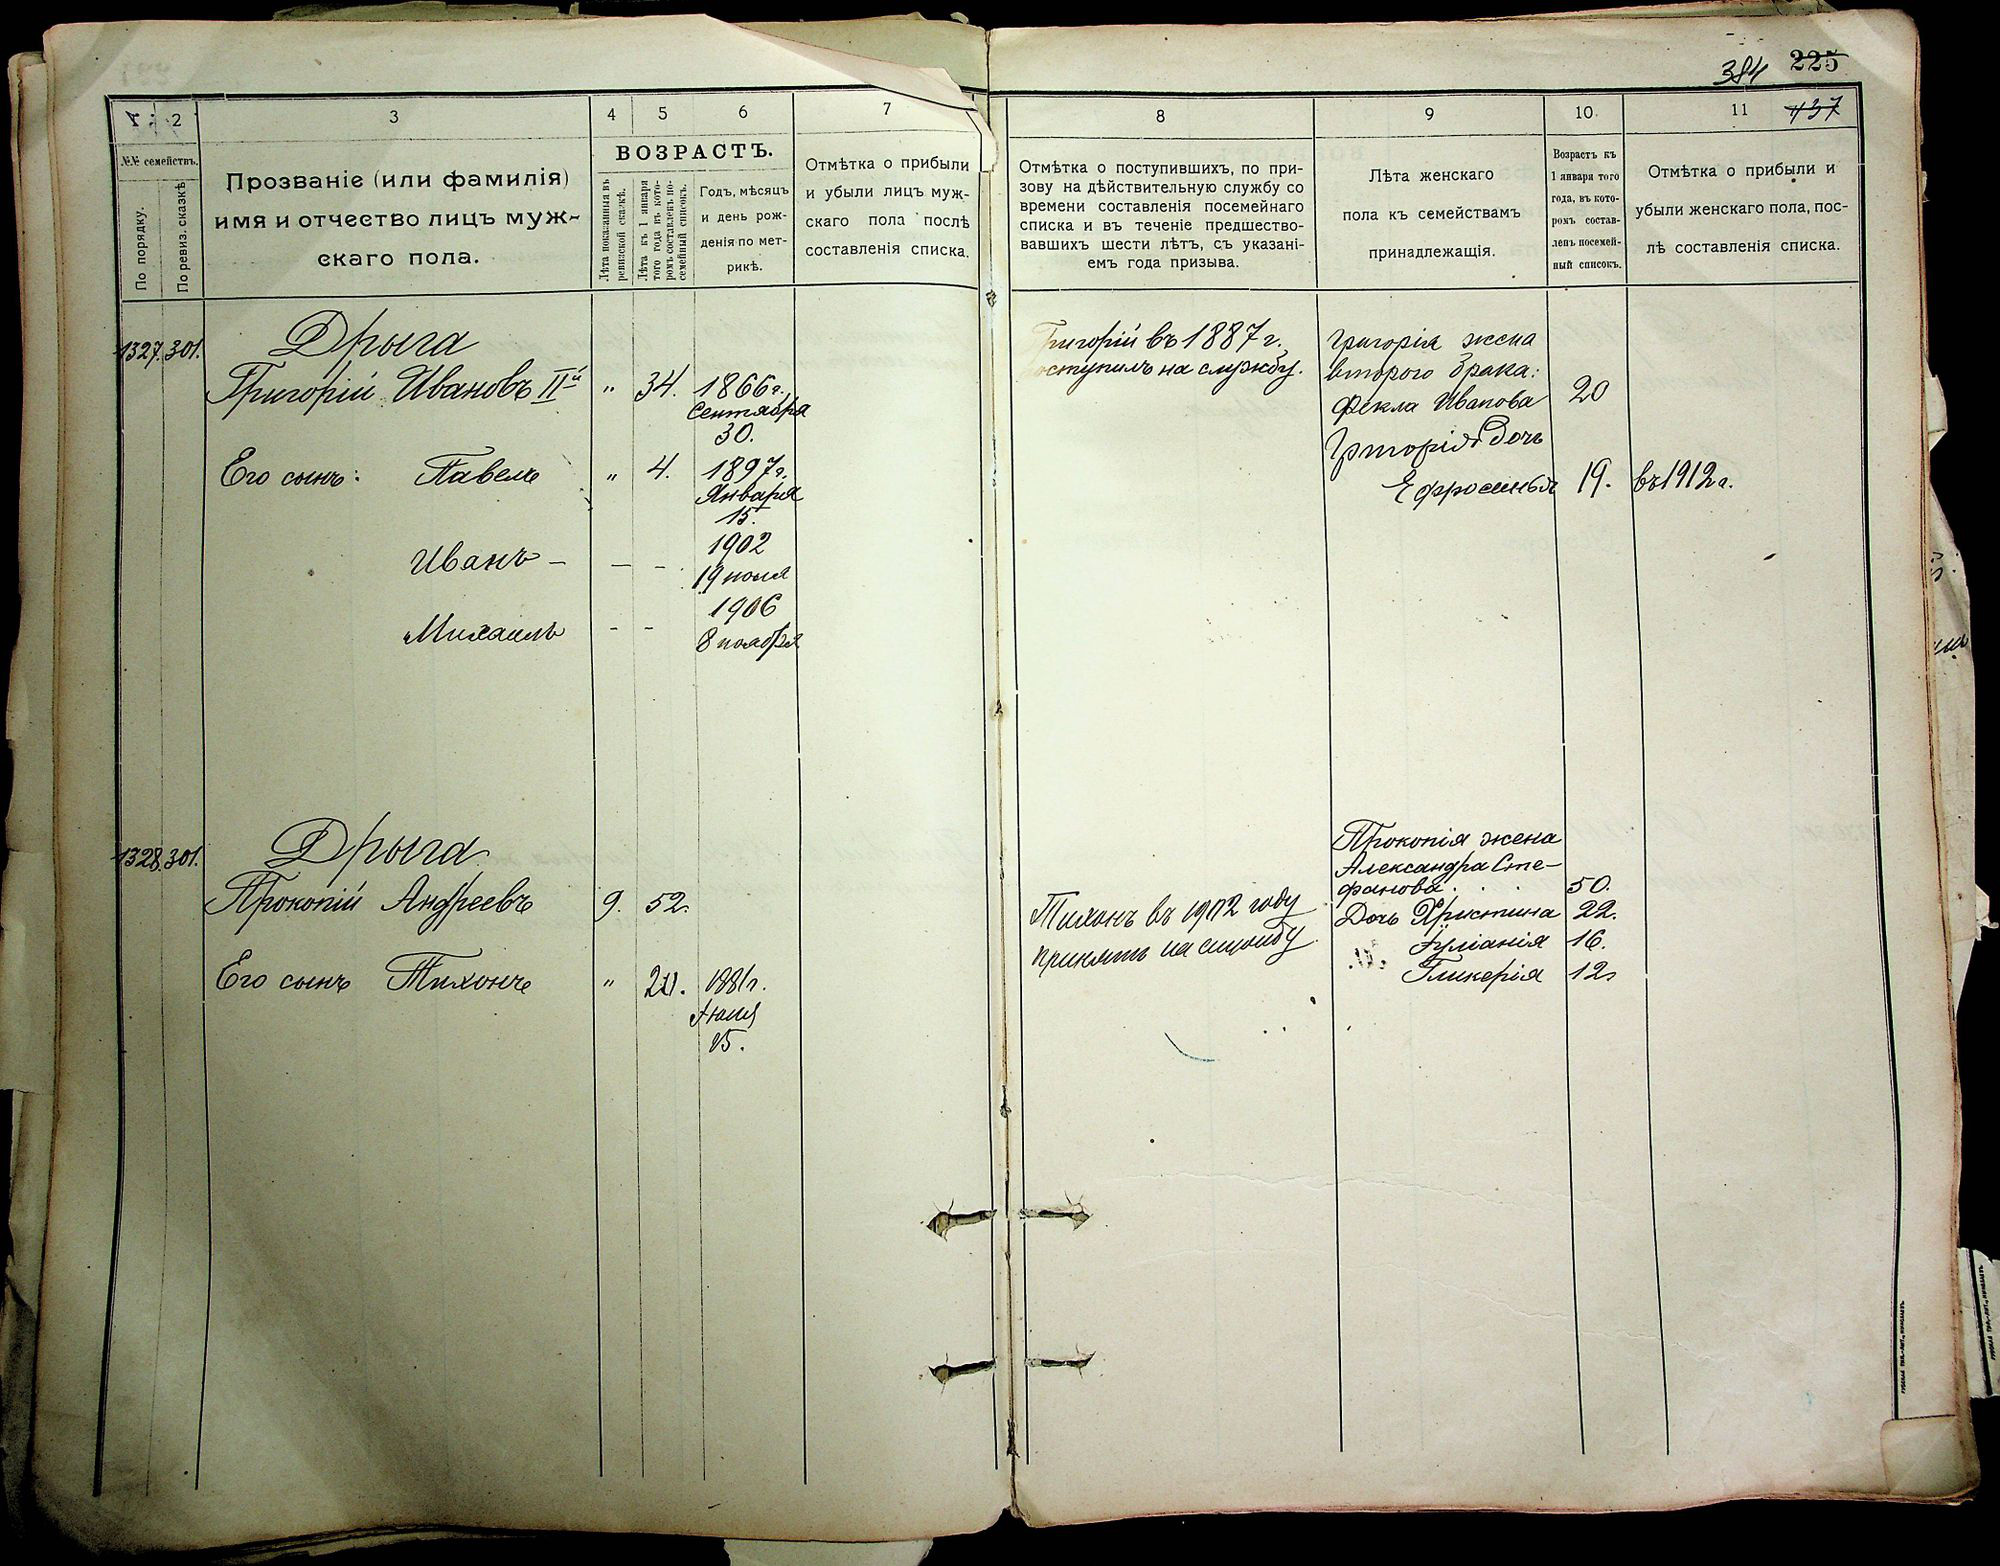 384 225
1 2 3 4 5 6 7
8 9 10. 11 437
№№ семействъ.
По порядку.
По ревиз. сказкѣ
Прозваніе (или фамилія)
имя и отчество лицъ муж-
скаго пола.
ВОЗРАСТЪ.
Лѣта показанныя въ
ревизской сказкѣ.
Лѣта къ 1 января
того года въ кото-
ромъ составленъ по-
семейный списокъ.
Годъ, мѣсяцъ
и день рож-
денія по мет-
рикѣ.
Отмѣтка о прибыли
и убыли лицъ муж-
скаго пола послѣ
составленія списка.
Отмѣтка о поступившихъ, по при-
зову на дѣйствительную службу со
времени составленія посемейнаго
списка и въ теченіе предшество-
вавшихъ шести лѣтъ, съ указані-
емъ года призыва.
Лѣта женскаго
пола къ семействамъ
принадлежащія.
Возрастъ къ
1 января того
года, въ кото-
ромъ состав-
ленъ посемей-
ный списокъ.
Отмѣтка о прибыли и
убыли женскаго пола, пос-
лѣ составленія списка.
1327. 301. Дрыга
Григорій Ивановъ IIй " 34. 1866 г.
Сентября
30.
Его сынъ: Павелъ " 4. 1897 г.
Января
15.
Иванъ — — — 1902
19 июля
Михаилъ — — 1906
8 ноября
Григорій въ 1887 г.
поступилъ на службу.
Григорія жена
второго брака:
Фекла Иванова 20
Григорія дочь
Ефросинья 19. въ 1912 г.
1328. 301. Дрыга
Прокопій Андреевъ 9. 52.
Его сынъ Тихонъ " 21. 1881 г.
Іюля
15.
Тихонъ въ 1902 году
принятъ на службу.
Прокопія жена
Александра Сте-
фанова. 50.
Дочь Христина 22.
Іуліанія 16.
Гликерія 12.